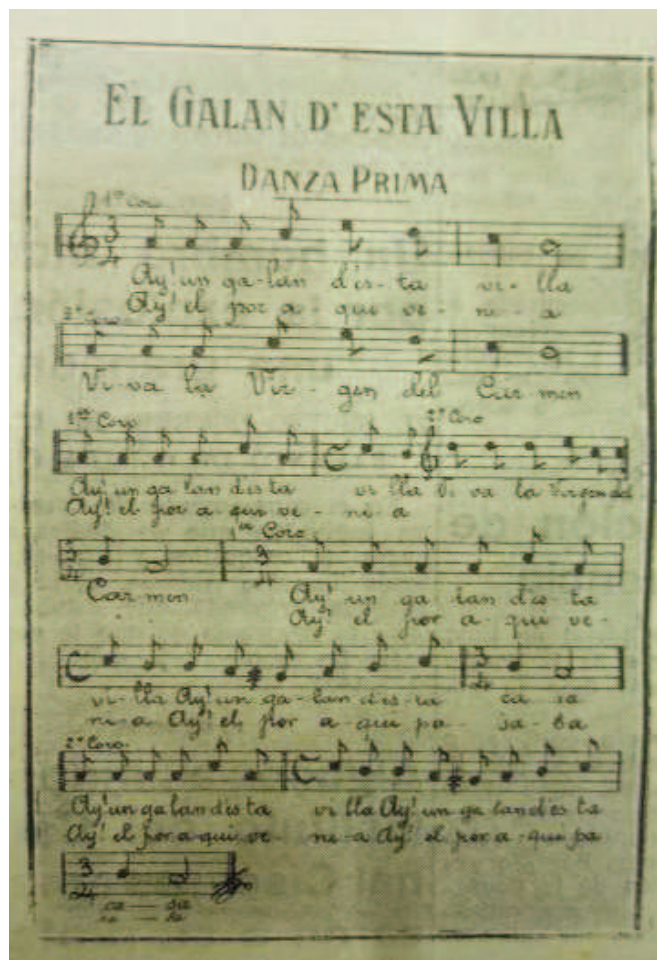 EL GALAN D' ESTA VILLA
DANZA PRIMA
1er Coro
3 4
Ay! un ga-lan d'es-ta vi-lla
Ay! el por a-que ve-ni-a
2º Coro
Vi-va la Vir-gen del Carmen
1er Coro 2º Coro
Ay! un ga lan d'es ta vi lla Vi va la Virgen del
Ay! el por a-qui ve-ni-a
1er Coro
3 4 3 4
Carmen Ay! un ga-lan d'es-ta
Ay! el por a-qui ve-
3 4
vi-lla Ay! un ga-lan d'es-ta ca sa
ni-a Ay! el por a-qui pa-sa-ba
2º Coro
Ay! un ga lan d'es ta vi lla Ay! un ga lan d'es ta
Ay! el por a-qui ve ni-a Ay! el por a-qui pa
3 4
ca — sa